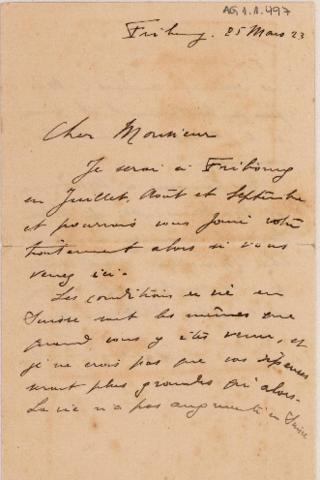 AG 1.1.497
Fribourg. 25 Mars 23
Cher Monsieur
Je serai à Fribourg
en Juillet, Août et Septembre
et pourrais vous faire votre
traitement alors si vous
venez ici.
Les conditions de vie en
Suisse sont les mêmes que
quand vous y êtes venu, et
je ne crois pas que vos dépenses
seront plus grandes qu'alors.
La vie n'a pas augmenté en Suisse